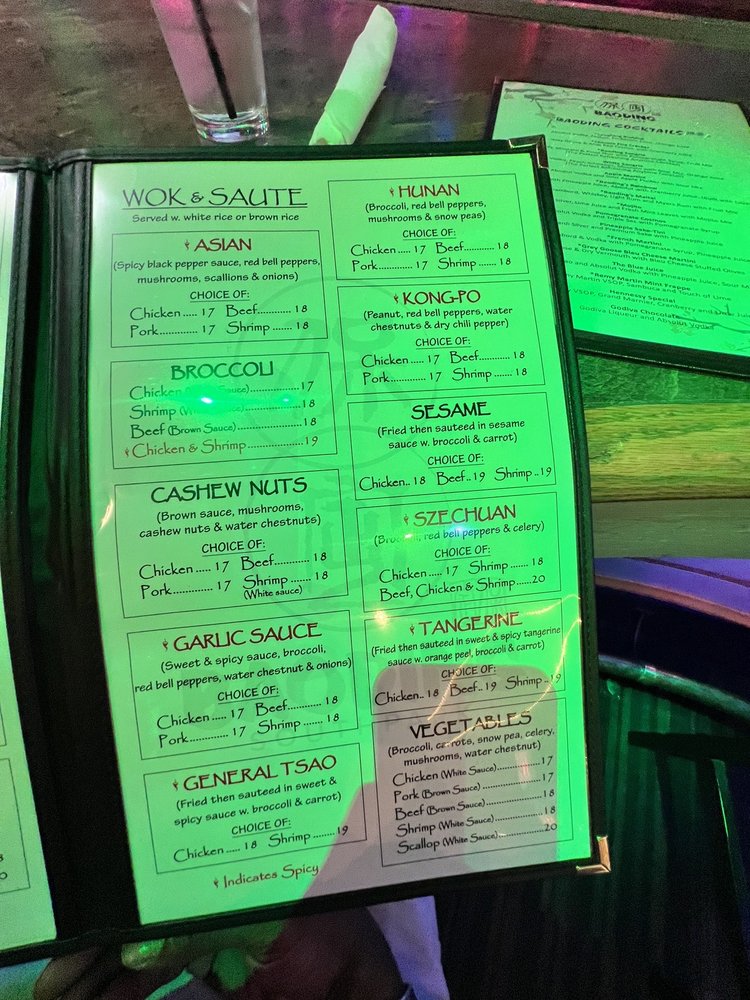 WOK & SAUTE
Served w. white rice or brown rice
ASIAN
(Spicy black pepper sauce, red bell peppers,
mushrooms, scallions & onions)
CHOICE OF:
Chicken ..... 17 Beef............. 18
Pork............. 17 Shrimp ....... 18
BROCCOLI
Chicken (White Sauce)..................17
Shrimp (White Sauce)..................18
Beef (Brown Sauce)......................18
Chicken & Shrimp..................19
CASHEW NUTS
(Brown sauce, mushrooms,
cashew nuts & water chestnuts)
CHOICE OF:
Chicken ..... 17 Beef............. 18
Pork............. 17 Shrimp ....... 18
(White sauce)
GARLIC SAUCE
(Sweet & spicy sauce, broccoli,
red bell peppers, water chestnut & onions)
CHOICE OF:
Chicken ..... 17 Beef............. 18
Pork............. 17 Shrimp ....... 18
GENERAL TSAO
(Fried then sauteed in sweet &
spicy sauce w. broccoli & carrot)
CHOICE OF:
Chicken ..... 18 Shrimp ........19
Indicates Spicy
HUNAN
(Broccoli, red bell peppers,
mushrooms & snow peas)
CHOICE OF:
Chicken ..... 17 Beef............. 18
Pork............. 17 Shrimp ....... 18
KONG-PO
(Peanut, red bell peppers, water
chestnuts & dry chili pepper)
CHOICE OF:
Chicken ..... 17 Beef............. 18
Pork............. 17 Shrimp ....... 18
SESAME
(Fried then sauteed in sesame
sauce w. broccoli & carrot)
CHOICE OF:
Chicken.. 18 Beef..19 Shrimp ..19
SZECHUAN
(Broccoli, red bell peppers & celery)
CHOICE OF:
Chicken ..... 17 Shrimp ....... 18
Beef, Chicken & Shrimp ......20
TANGERINE
(Fried then sauteed in sweet & spicy tangerine
sauce w. orange peel, broccoli & carrot)
CHOICE OF:
Chicken.. 18 Beef..19 Shrimp ..19
VEGETABLES
(Broccoli, carrots, snow pea, celery,
mushrooms, water chestnut)
Chicken (White Sauce)..................17
Pork (Brown Sauce)......................17
Beef (Brown Sauce)......................18
Shrimp (White Sauce)..................18
Scallop (White Sauce)..................20
BAODING
BAODING COCKTAILS
Pomegranate Cosmo
Pineapple Sake-Tini
*French Martini
*Grey Goose Bleu Cheese Martini
The Blue Juice
*Remy Martin Mint Frappe
Remy Martin VSOP, Sambuca and Touch of Lime
Hennessy Special
VSOP, Grand Marnier, Cranberry and Lime Juice
Godiva Chocolate
Godiva Liqueur and Absolut Vodka